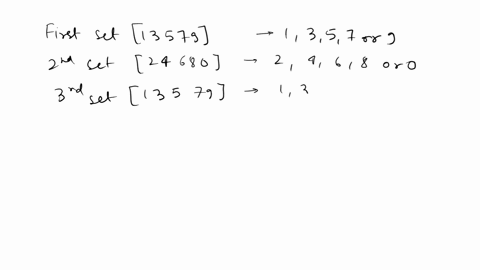 First set [13579] → 1, 3, 5, 7 or 9
2nd set [24680] → 2, 4, 6, 8 or 0
3rd set [13579] → 1, 3